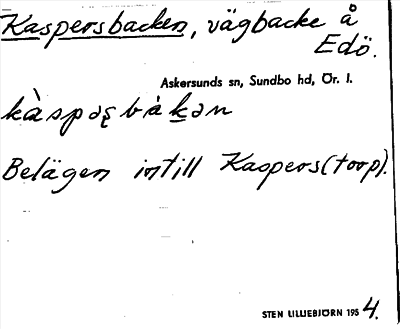 Kaspersbacken, vägbacke å
Edö.
Askersunds sn, Sundbo hd, Ör. l.
kàspəʂbàkən
Belägen intill Kaspers(torp).
STEN LILLIEBJÖRN 1954.